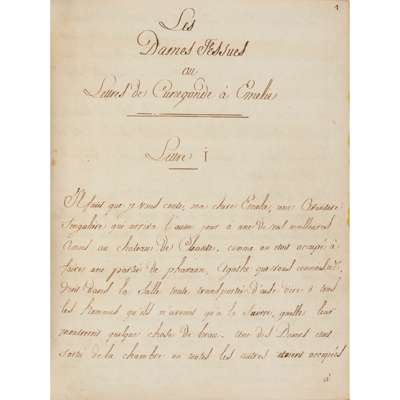 1
Les
Dames Fessues
ou
Lettres de Cunegonde à Emelie
Lettre I
Il faut que je vous conte, ma chere Emelie, une Avanture
singuliere qui arriva l'autre jour à une de vos meilleures
Amies au chateau de comme on etoit occupé à
faire une partie de pharaon, Agathe que vous connoissés,
dans la Salle toute transportée de joie dire à tous
les hommes qu'ils n'avoient qu'à la Suivre, qu'elle leur
montreroit quelque chose de beau. Une des Dames etoit
sortie de la chambre ou toutes les autres etoient occupées
à